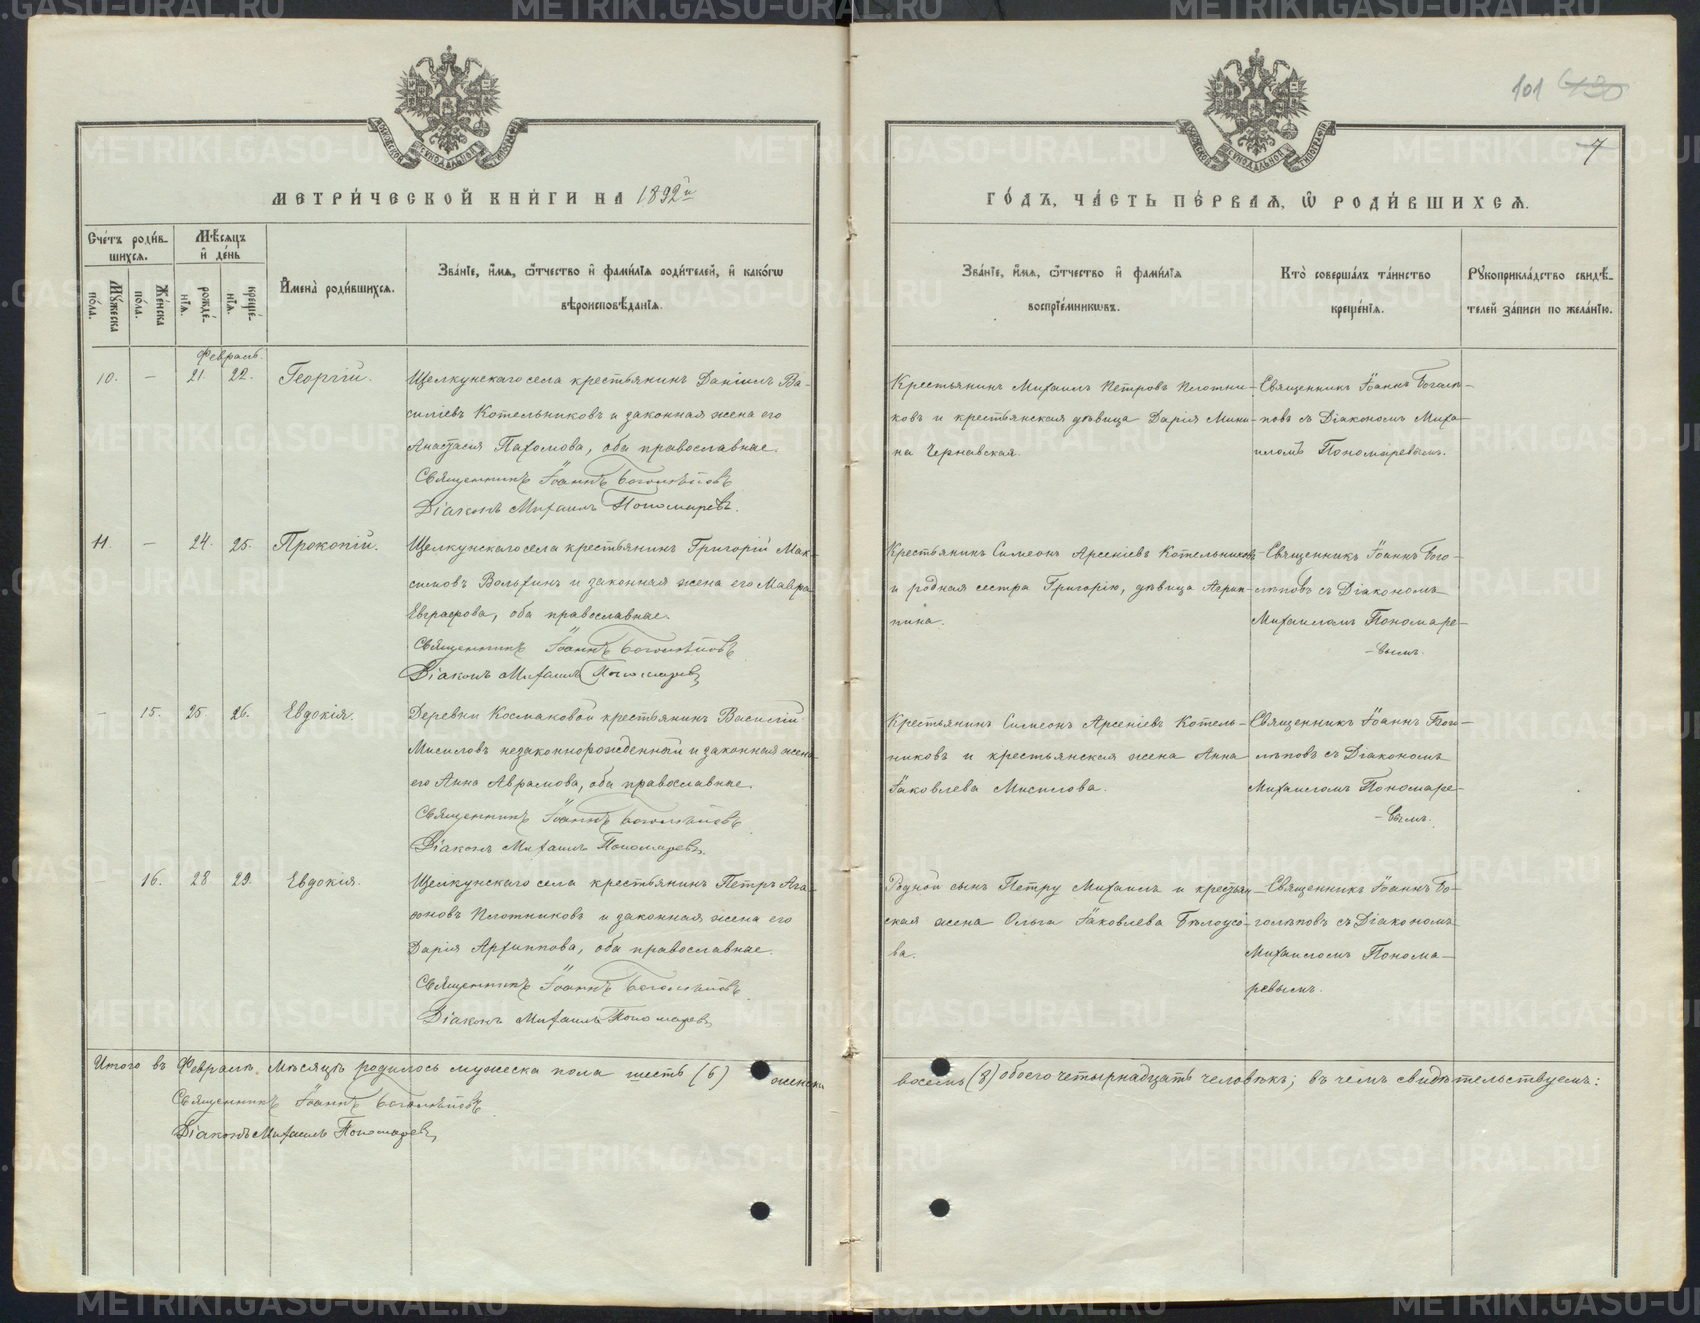 101 430
7
МОСКОВСКОЙ СУНОДАЛЬНОЙ ТИПОГРАФІИ
МЕТРИ́ЧЕСКОЙ КНИ́ГИ НА 1892й
Сче́тъ роди́в-
шихсѧ.
Мѣ́сѧцъ
и҆ де́нь
Мꙋ́жеска
по́ла.
Же́нска
по́ла.
рожде́-
нїѧ.
креще́-
нїѧ.
И҆мена̀ роди́вшихсѧ.
Зва́нїе, и҆́мѧ, ѻ҆́тчество и҆ фами́лїѧ роди́телей, и҆ како́гѡ
вѣроисповѣ́данїѧ.
Февраль.
10. — 21. 22. Георгій.
Щелкунскаго села крестьянинъ Даніилъ Ва-
силіевъ Котельниковъ и законная жена его
Анастасія Пахомова, оба православные.
Священникъ Іоаннъ Боголѣповъ
Діаконъ Михаилъ Пономаревъ.
11. — 24. 25. Прокопій.
Щелкунскаго села крестьянинъ Григорій Мак-
симовъ Вольхинъ и законная жена его Мавра
Евграфова, оба православные.
Священникъ Іоаннъ Боголѣповъ
Діаконъ Михаилъ Пономаревъ
— 15. 25. 26. Евдокія.
Деревни Космаковой крестьянинъ Василій
Мисиловъ незаконнорожденный и законная жена
его Анна Аврамова, оба православные.
Священникъ Іоаннъ Боголѣповъ
Діаконъ Михаилъ Пономаревъ.
— 16. 28 29. Евдокія.
Щелкунскаго села крестьянинъ Петръ Ага-
фоновъ Плотниковъ и законная жена его
Дарія Архиппова, оба православные.
Священникъ Іоаннъ Боголѣповъ
Діаконъ Михаилъ Пономаревъ
Итого въ Февралѣ мѣсяцѣ родилось мужеска пола шесть (6) женска
Священникъ Іоаннъ Боголѣповъ
Діаконъ Михаилъ Пономаревъ
МОСКОВСКОЙ СУНОДАЛЬНОЙ ТИПОГРАФІИ
ГО́ДЪ, ЧА́СТЬ ПЕ́РВАѦ, Ѡ҆ РОДИ́ВШИХСѦ.
Зва́нїе, и҆́мѧ, ѻ҆́тчество и҆ фами́лїѧ
воспрїе́мникѡвъ.
Кто̀ соверша́лъ та́инство
креще́нїѧ.
Рꙋкоприкла́дство свидѣ́-
телей за́писи по жела́нїю.
Крестьянинъ Михаилъ Петровъ Плотни-
ковъ и крестьянская дѣвица Дарія Мини-
на Чернавская.
Священникъ Іоаннъ Боголѣ-
повъ съ Діакономъ Миха-
иломъ Пономаревымъ.
Крестьянинъ Симеонъ Арсеніевъ Котельниковъ
и родная сестра Григорію, дѣвица Агрип-
пина.
Священникъ Іоаннъ Бого-
лѣповъ съ Діакономъ
Михаиломъ Пономаре-
вымъ.
Крестьянинъ Симеонъ Арсеніевъ Котель-
никовъ и крестьянская жена Анна
Іаковлева Мисилова.
Священникъ Іоаннъ Бого-
лѣповъ съ Діакономъ
Михаиломъ Пономаре-
вымъ.
Родной сынъ Петру Михаилъ и крестьян-
ская жена Ольга Іаковлева Бѣлоусо-
ва.
Священникъ Іоаннъ Бо-
голѣповъ съ Діакономъ
Михаиломъ Понома-
ревымъ.
восемь (8) обоего четырнадцать человѣкъ; въ чемъ свидѣтельствуемъ:
METRIKI.GASO-URAL.RU